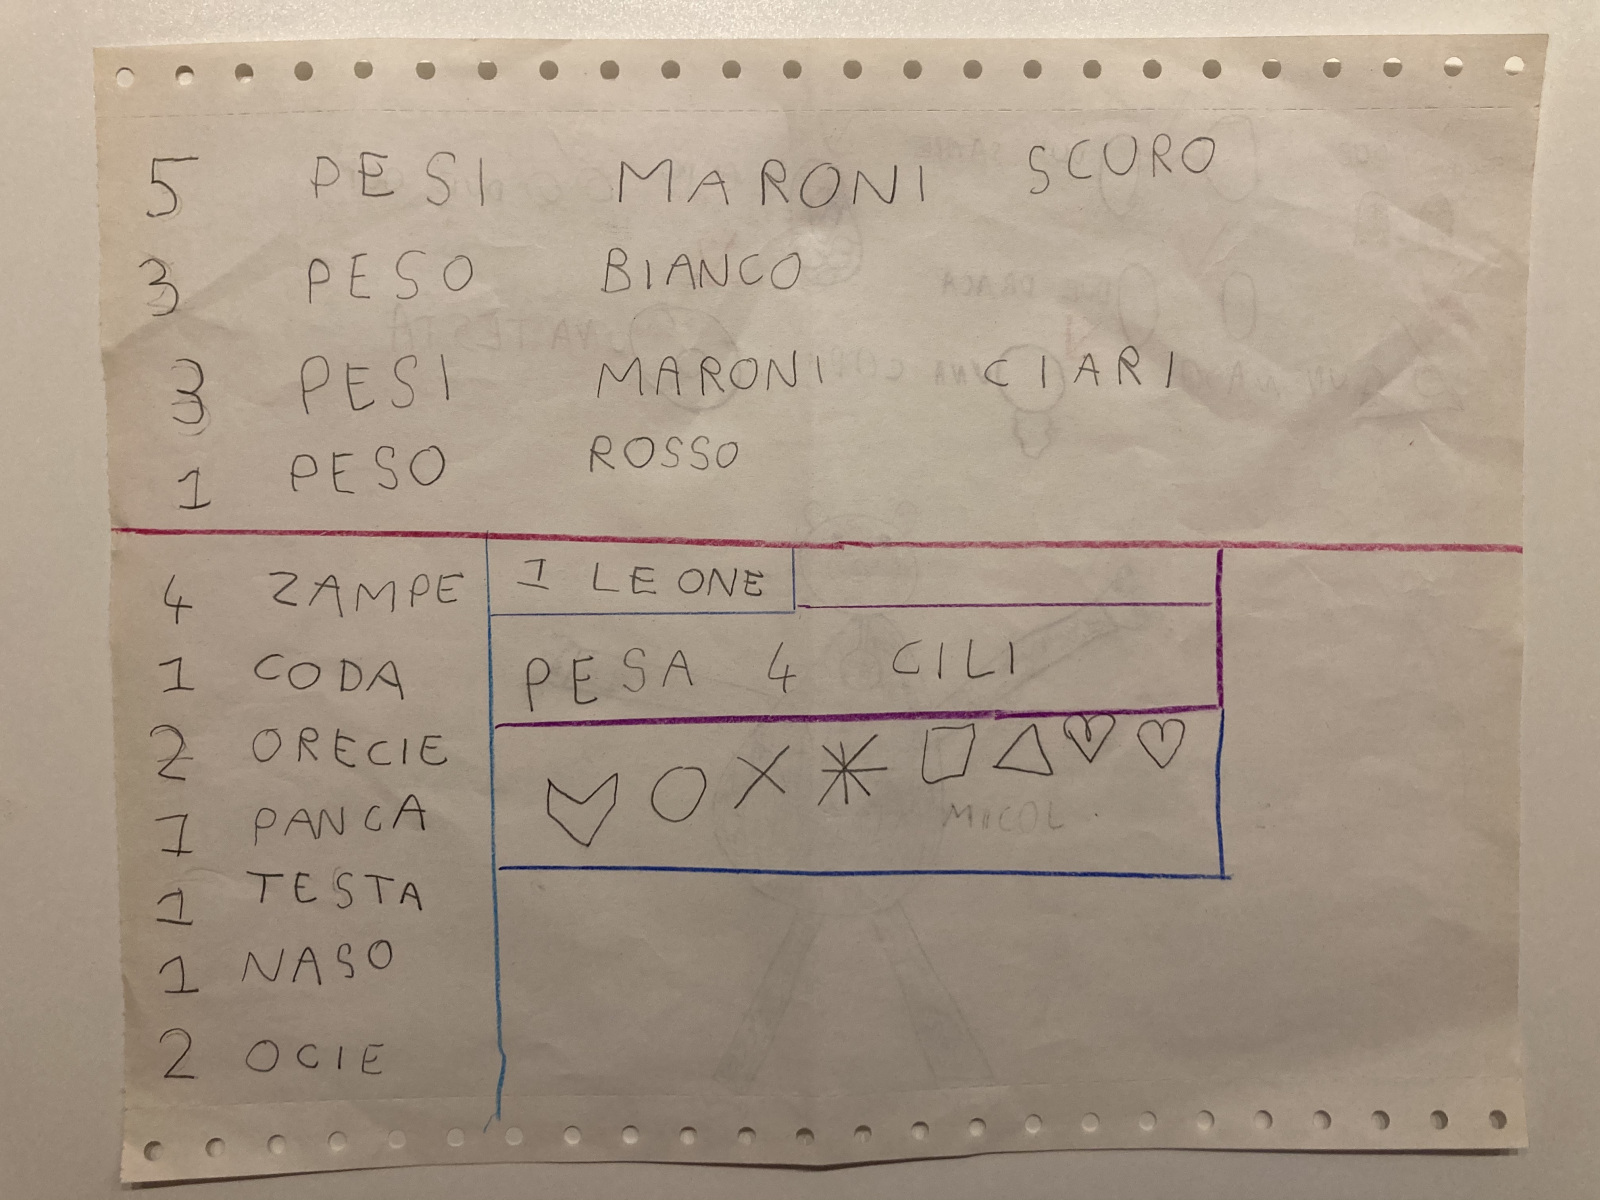 5 PESI MARONI SCORO
3 PESO BIANCO
3 PESI MARONI CIARI
1 PESO ROSSO
4 ZAMPE
1 CODA
2 ORECIE
1 PANCA
1 TESTA
1 NASO
2 OCIE
1 LEONE
PESA 4 CILI
MICOL